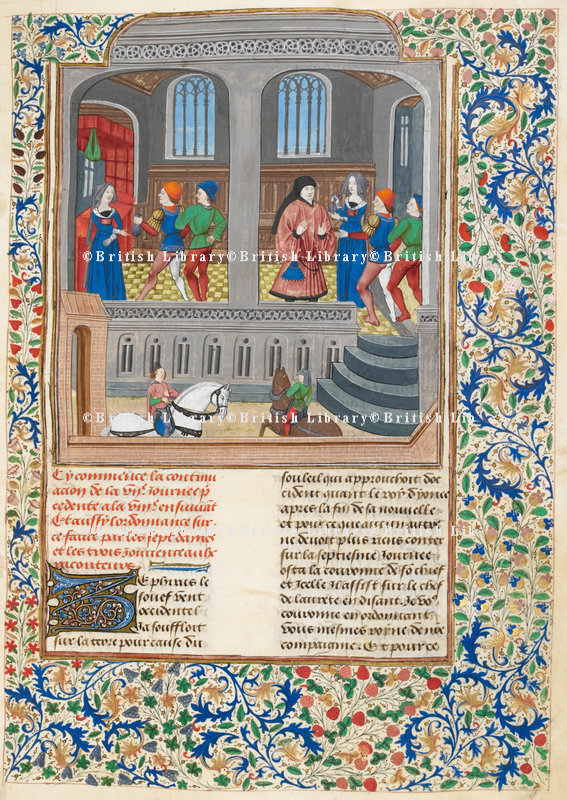 ©British Library©British Library©British Lib
©British Library©British Library©British Lib
Cy commence la continu
acion de la vije journee p̄
cedente a la viije ensuivāt
Et aussy lordonnance sur
ce faicte par les sept dames
et les trois
Zephirus le
souef vent
occidentel
ja souffloit
sur la terre pour cause du
souleil qui approuchoit doc
cident quant le roy dyonee
apres la fin de sa nouvelle
et pour ce que aucun autre
ne devoit plus riens conter
sur la septiesme journee
osta la couronne de son chief
et icelle il assist sur le chef
de laurete en disant Je vo9
couronne en ordonnant
vous mesmes royne de nr̄e
compaignie. Et pour ce